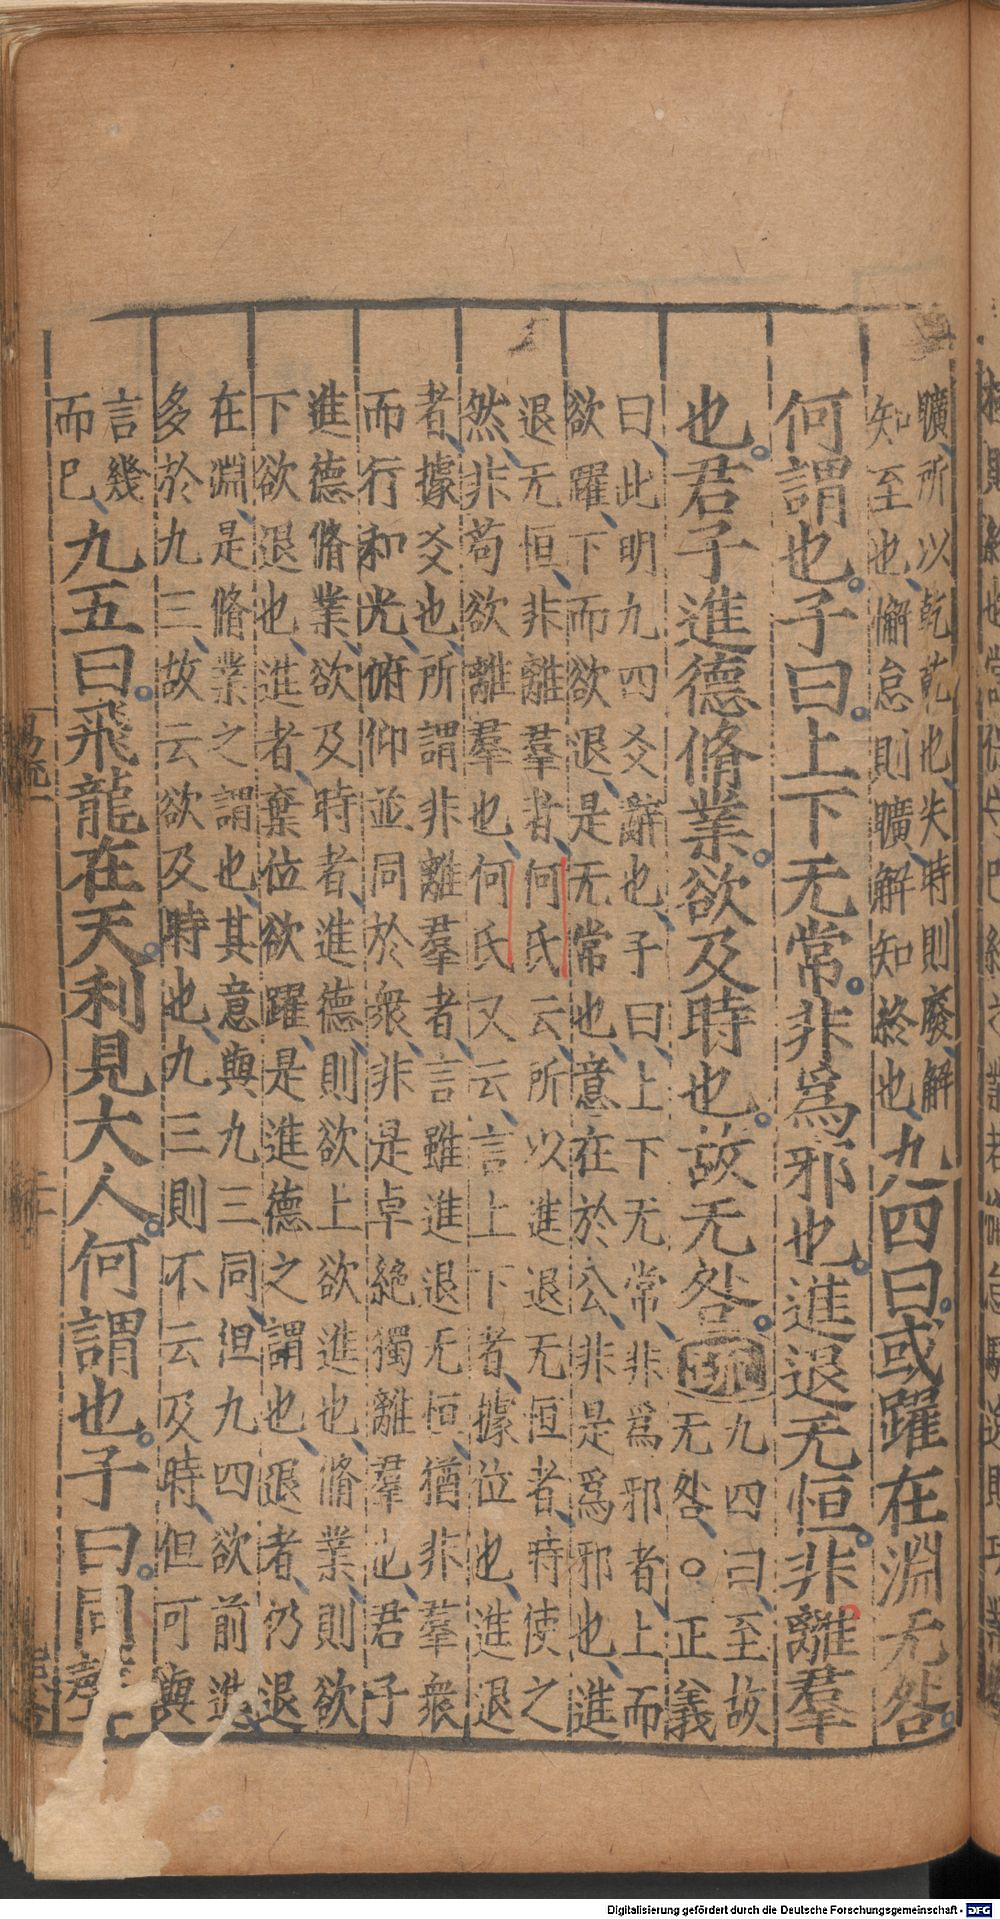 曠、所以乾乾也、失時則廢、解
知至也、懈怠則曠、解知終也、九四曰。或躍在淵无咎。
何謂也。子曰。上下无常。非爲邪也。進退无恒。非離羣
也。君子進德脩業。欲及時也。故无咎。疏九四曰、至故
无咎、○正義
曰、此明九四爻辭也、子曰、上下无常、非爲邪者、上而
欲躍、下而欲退、是无常也、意在於公、非是爲邪也、進
退无恒、非離羣者、何氏云、所以進退无恒者、時使之
然、非苟欲離羣也、何氏又云、言上下者、據位也、進退
者、據爻也、所謂非離羣者、言雖進退无恒、猶非羣衆
而行、和光俯仰、並同於衆、非是卓絶獨離羣也、君子
進德脩業、欲及時者、進德則欲上欲進也、脩業、則欲
下欲退也、進者、棄位欲躍、是進德之謂也、退者、仍退
在淵、是脩業之謂也、其意與九三同、但九四欲前進
多於九三、故云欲及時也、九三則不云及時、但可與
言幾
而已、九五曰。飛龍在天。利見大人。何謂也。子曰。同聲
Digitalisierung gefördert durch die Deutsche Forschungsgemeinschaft - DFG